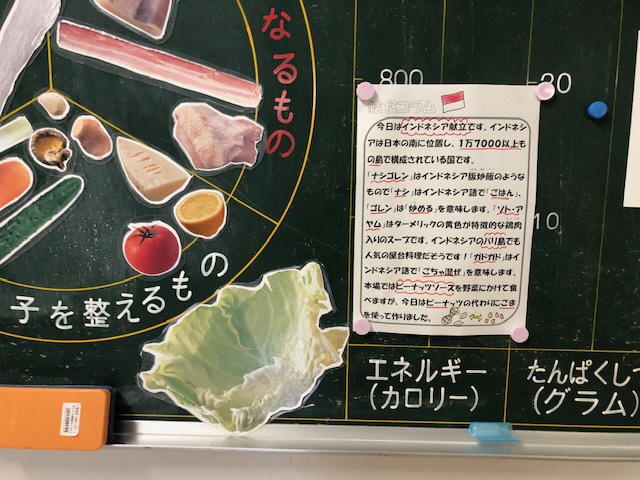 なるもの
子を整えるもの
800
20
10
給食コラム
今日はインドネシア献立です。インドネシ
アは日本の南に位置し、1万7000以上も
の島で構成されている国です。
「ナシゴレン」はインドネシア版炒飯のような
もので「ナシ」はインドネシア語で「ごはん」、
「ゴレン」は「炒める」を意味します。「ソト・ア
ヤム」はターメリックの黄色が特徴的な鶏肉
入りのスープです。インドネシアのバリ島でも
人気の屋台料理だそうです！「ガドガド」はイ
ンドネシア語で「ごちゃ混ぜ」を意味します。
本場ではピーナッツソースを野菜にかけて食
べますが、今日はピーナッツの代わりにごま
を使って作りました。
エネルギー
（カロリー）
たんぱくしつ
（グラム）